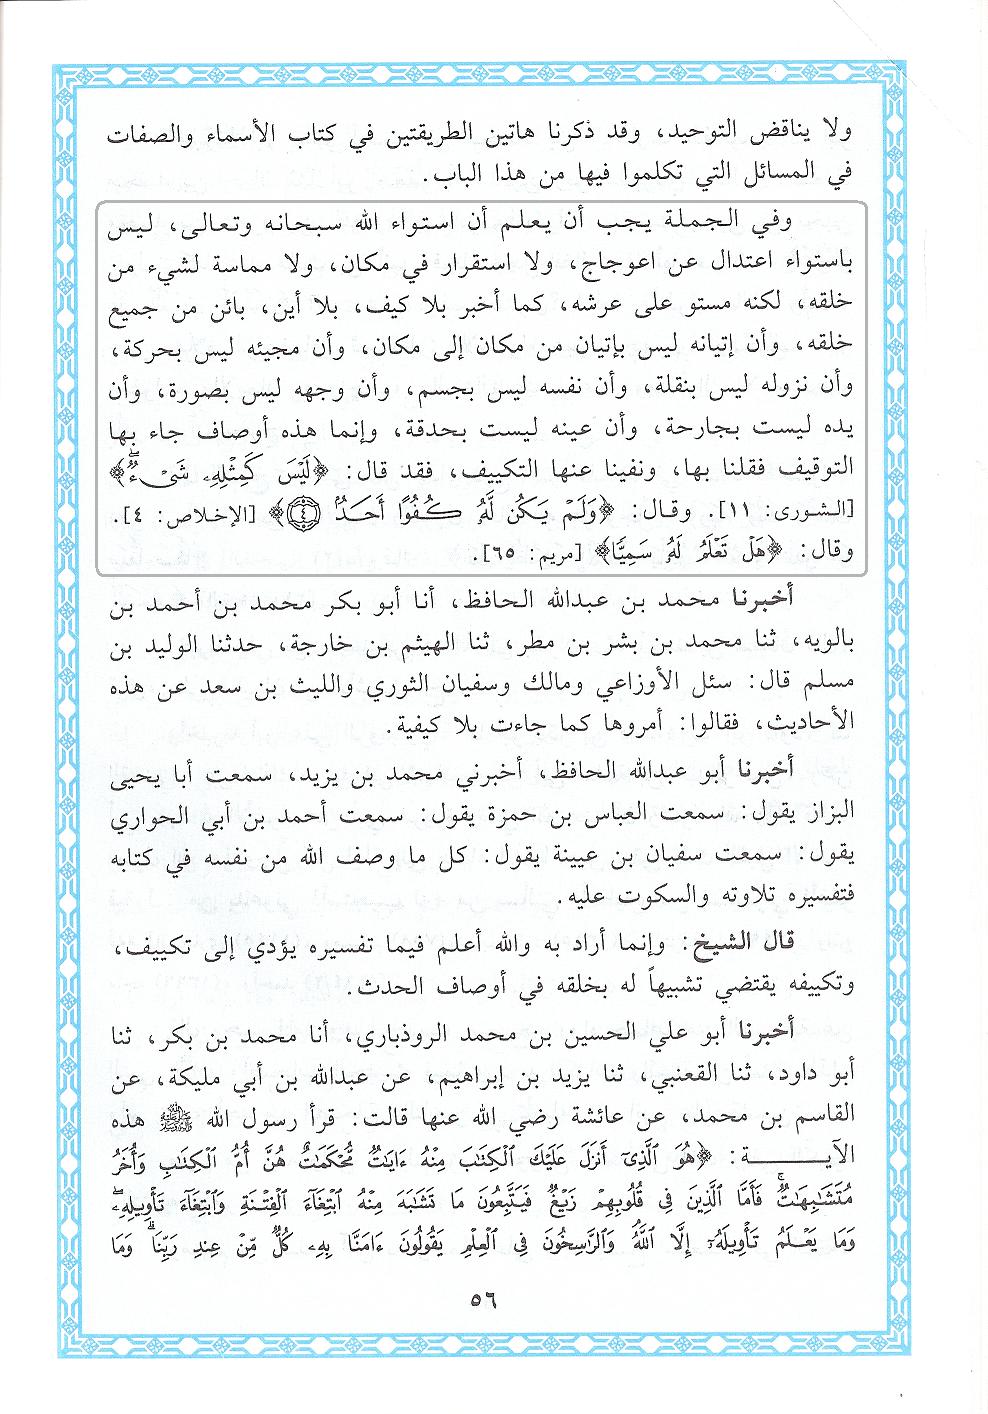 ولا يناقض التوحيد، وقد ذكرنا هاتين الطريقتين في كتاب الأسماء والصفات
في المسائل التي تكلموا فيها من هذا الباب.
وفي الجملة يجب أن يعلم أن استواء الله سبحانه وتعالى، ليس
باستواء اعتدال عن اعوجاج، ولا استقرار في مكان، ولا مماسة لشيء من
خلقه، لكنه مستو على عرشه، كما أخبر بلا كيف، بلا أين، بائن من جميع
خلقه، وأن إتيانه ليس بإتيان من مكان إلى مكان، وأن مجيئه ليس بحركة،
وأن نزوله ليس بنقلة، وأن نفسه ليس بجسم، وأن وجهه ليس بصورة، وأن
يده ليست بجارحة، وأن عينه ليست بحدقة، وإنما هذه أوصاف جاء بها
التوقيف فقلنا بها، ونفينا عنها التكييف، فقد قال: ﴿لَيْسَ كَمِثْلِهِۦ شَىْءٌۖ﴾
[الشورى: ١١]. وقال: ﴿وَلَمْ يَكُن لَّهُۥ كُفُوًا أَحَدٌۢ ٤﴾ [الإخلاص: ٤].
وقال: ﴿هَلْ تَعْلَمُ لَهُۥ سَمِيًّا﴾ [مريم: ٦٥].
أخبرنا محمد بن عبدالله الحافظ، أنا أبو بكر محمد بن أحمد بن
بالويه، ثنا محمد بن بشر بن مطر، ثنا الهيثم بن خارجة، حدثنا الوليد بن
مسلم قال: سئل الأوزاعي ومالك وسفيان الثوري والليث بن سعد عن هذه
الأحاديث، فقالوا: أمروها كما جاءت بلا كيفية.
أخبرنا أبو عبدالله الحافظ، أخبرني محمد بن يزيد، سمعت أبا يحيى
البزاز يقول: سمعت العباس بن حمزة يقول: سمعت أحمد بن أبي الحواري
يقول: سمعت سفيان بن عيينة يقول: كل ما وصف الله من نفسه في كتابه
فتفسيره تلاوته والسكوت عليه.
قال الشيخ: وإنما أراد به والله أعلم فيما تفسيره يؤدي إلى تكييف،
وتكييفه يقتضي تشبيهاً له بخلقه في أوصاف الحدث.
أخبرنا أبو علي الحسين بن محمد الروذباري، أنا محمد بن بكر، ثنا
أبو داود، ثنا القعنبي، ثنا يزيد بن إبراهيم، عن عبدالله بن أبي مليكة، عن
القاسم بن محمد، عن عائشة رضي الله عنها قالت: قرأ رسول الله ﷺ هذه
الآيـــــــة: ﴿هُوَ ٱلَّذِىٓ أَنزَلَ عَلَيْكَ ٱلْكِتَٰبَ مِنْهُ ءَايَٰتٌ مُّحْكَمَٰتٌ هُنَّ أُمُّ ٱلْكِتَٰبِ وَأُخَرُ
مُتَشَٰبِهَٰتٌۖ فَأَمَّا ٱلَّذِينَ فِى قُلُوبِهِمْ زَيْغٌ فَيَتَّبِعُونَ مَا تَشَٰبَهَ مِنْهُ ٱبْتِغَآءَ ٱلْفِتْنَةِ وَٱبْتِغَآءَ تَأْوِيلِهِۦۖ
وَمَا يَعْلَمُ تَأْوِيلَهُۥٓ إِلَّا ٱللَّهُ وَٱلرَّٰسِخُونَ فِى ٱلْعِلْمِ يَقُولُونَ ءَامَنَّا بِهِۦ كُلٌّ مِّنْ عِندِ رَبِّنَاۗ وَمَا
٥٦